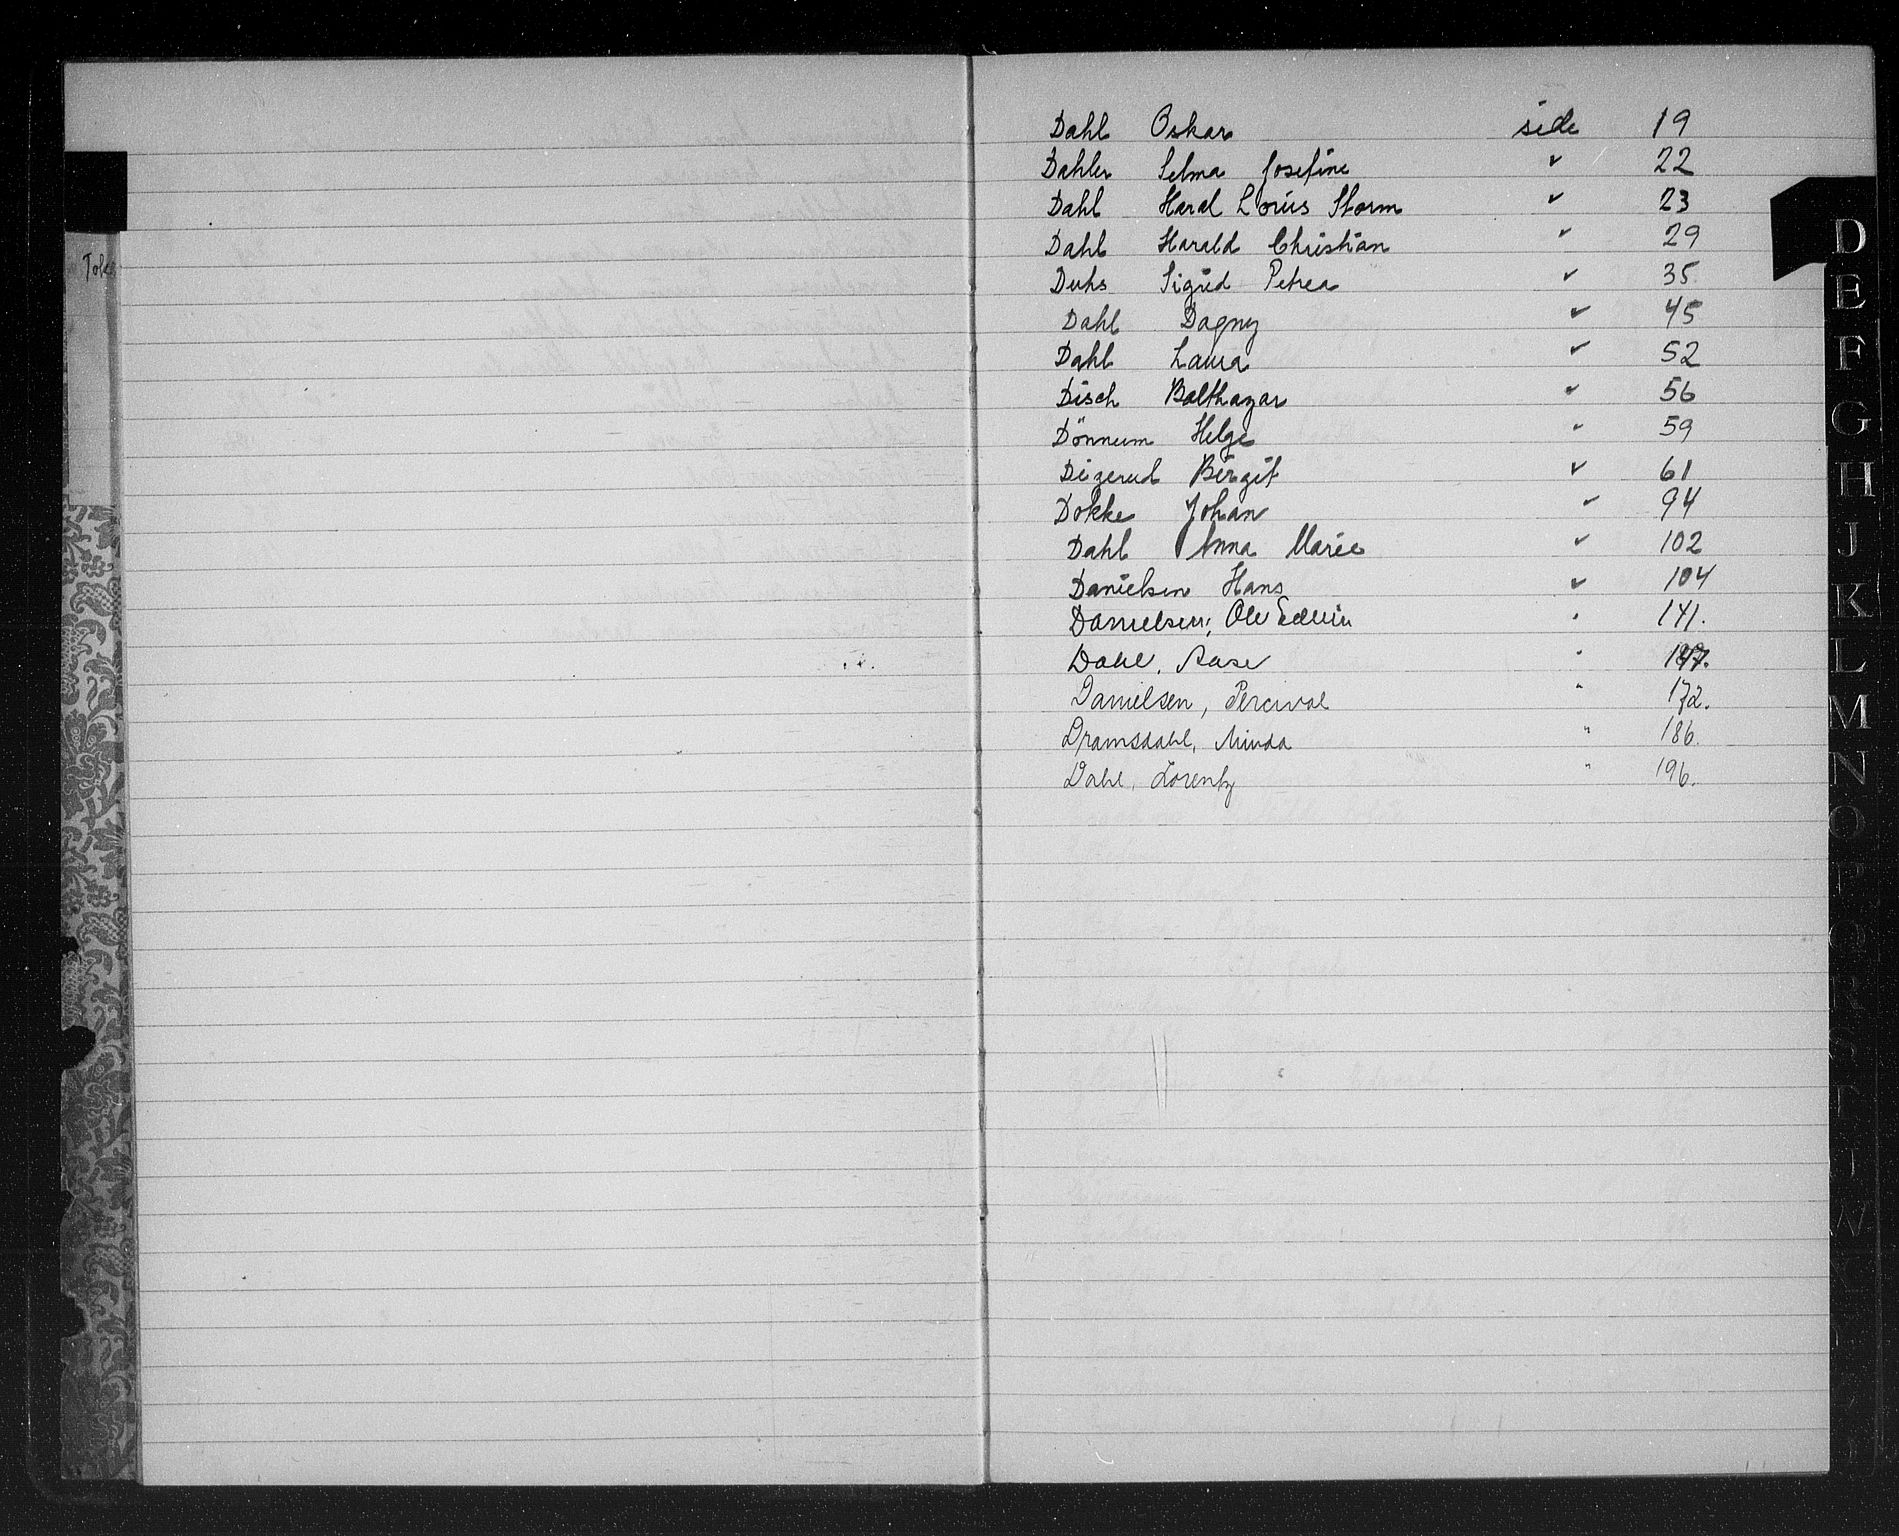 Dahl Oskar side 19
Dahler Selma Josefine " 22
Dahl Haral Louis Storm " 23
Dahl Harald Christian " 29
Duhs Sigrid Petrea " 35.
Dahl Dagny " 45
Dahl Laura " 52
Disch Balthazar " 56
Dønnum Helge " 59
Digerud Birgit " 61
Dokke Johan " 94
Dahl Anna Marie " 102
Danielsen Hans " 104
Danielsen, Ole Edwin " 141.
Dahl, Aase "
Danielsen, Percival " 172.
Dramsdahl, Minda " 186.
Dahl, Lorentz " 196.
D
E
F
G
H
J
K
L
M
N
O
P
Q
R
S
T